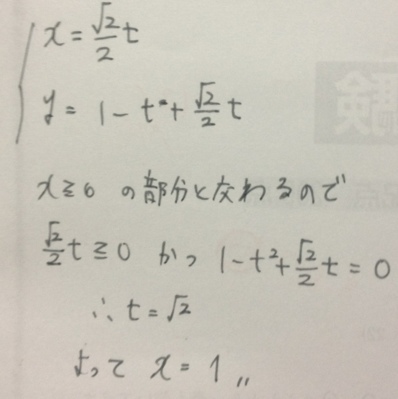 x = √2/2 t
y = 1 - t² + √2/2 t
x ≧ 0 の部分と交わるので
√2/2 t ≧ 0 かつ 1 - t² + √2/2 t = 0
∴ t = √2
よって x = 1 〃